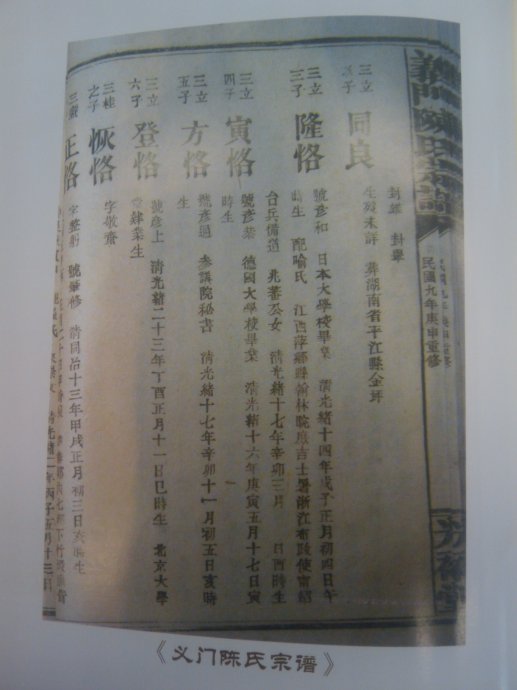 義門陳氏宗譜
民國九年庚申重修
三立
子
同良
生歿未詳 葬湖南省平江縣金坪
三立
三子
隆恪
號彥和 日本大學校畢業 清光緒十四年戊子正月初四日午
時生 配喻氏 江西萍鄉縣翰林院庶吉士署浙江布政使甯紹
台兵備道 兆蕃公女 清光緒十七年辛卯三月 日酉時生
三立
四子
寅恪
號彥恭 德國大學校畢業 清光緒十六年庚寅五月十七日寅
時生
三立
五子
方恪
號彥通 參議院秘書 清光緒十七年辛卯十一月初五日亥時
生
三立
六子
登恪
號彥上 清光緒二十三年丁酉正月十一日巳時生 北京大學
堂肄業生
三桂
之子
恢恪
字敬齋
正恪
字整躬 號肇修 清同治十三年甲戌正月初三日亥時生
《义门陈氏宗谱》